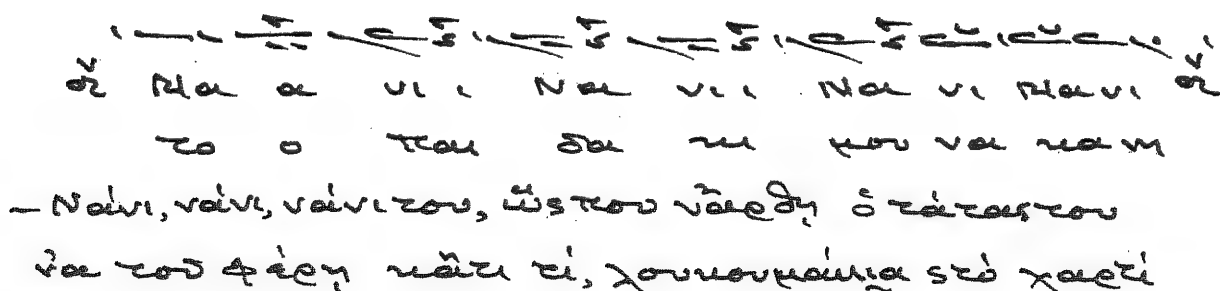 Να α νι ι Να νι ι Να νι Νανι
το ο παι δα κι μου να κα νη
– Νάνι, νάνι, νάνι του, ὥς που νἄρθῃ ὁ τάτας του
νὰ τοῦ φέρῃ κἄτι τί, λουκουμάκια στό χαρτί